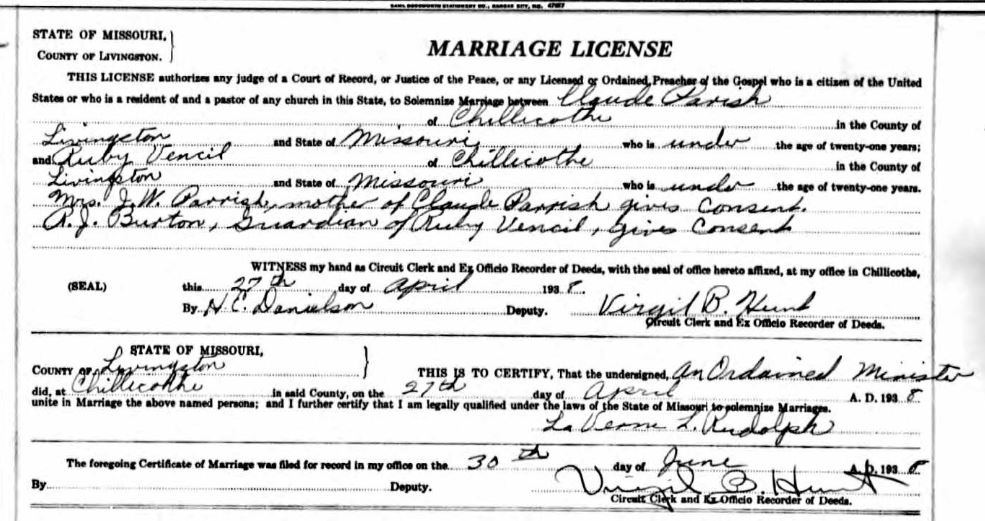 STATE OF MISSOURI,
COUNTY OF LIVINGSTON.
MARRIAGE LICENSE
THIS LICENSE authorizes any judge of a Court of Record, or Justice of the Peace, or any Licensed or Ordained Preacher of the Gospel who is a citizen of the United
States or who is a resident of and a pastor of any church in this State, to Solemnize Marriage between Claude Parish
of Chillicothe in the County of
Livingston and State of Missouri who is under the age of twenty-one years;
and Ruby Vencil of Chillicothe in the County of
Livingston and State of Missouri who is under the age of twenty-one years.
Mrs. J. W. Parrish, mother of Claude Parrish gives consent.
R. J. Burton, Guardian of Ruby Vencil, gives consent
WITNESS my hand as Circuit Clerk and Ex Officio Recorder of Deeds, with the seal of office hereto affixed, at my office in Chillicothe,
(SEAL) this 27th day of April 1938.
By H C. Danielson Deputy. Virgil B. Hunt
Circuit Clerk and Ex Officio Recorder of Deeds.
STATE OF MISSOURI,
COUNTY OF Livingston THIS IS TO CERTIFY, That the undersigned, An Ordained Minister
did, at Chillicothe in said County, on the 27th day of April A. D. 1938
unite in Marriage the above named persons; and I further certify that I am legally qualified under the laws of the State of Missouri to solemnize Marriages.
La Verne L. Rudolph
The foregoing Certificate of Marriage was filed for record in my office on the 30th day of June A. D. 1938
By Deputy. Virgil B. Hunt
Circuit Clerk and Ex Officio Recorder of Deeds.